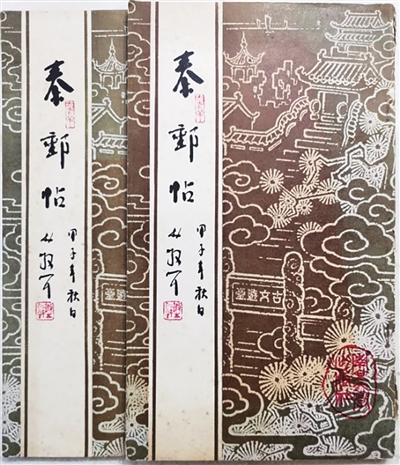 秦郵帖
甲子年秋日
林散耳
秦郵帖
甲子年秋日
林散耳
古文遊臺